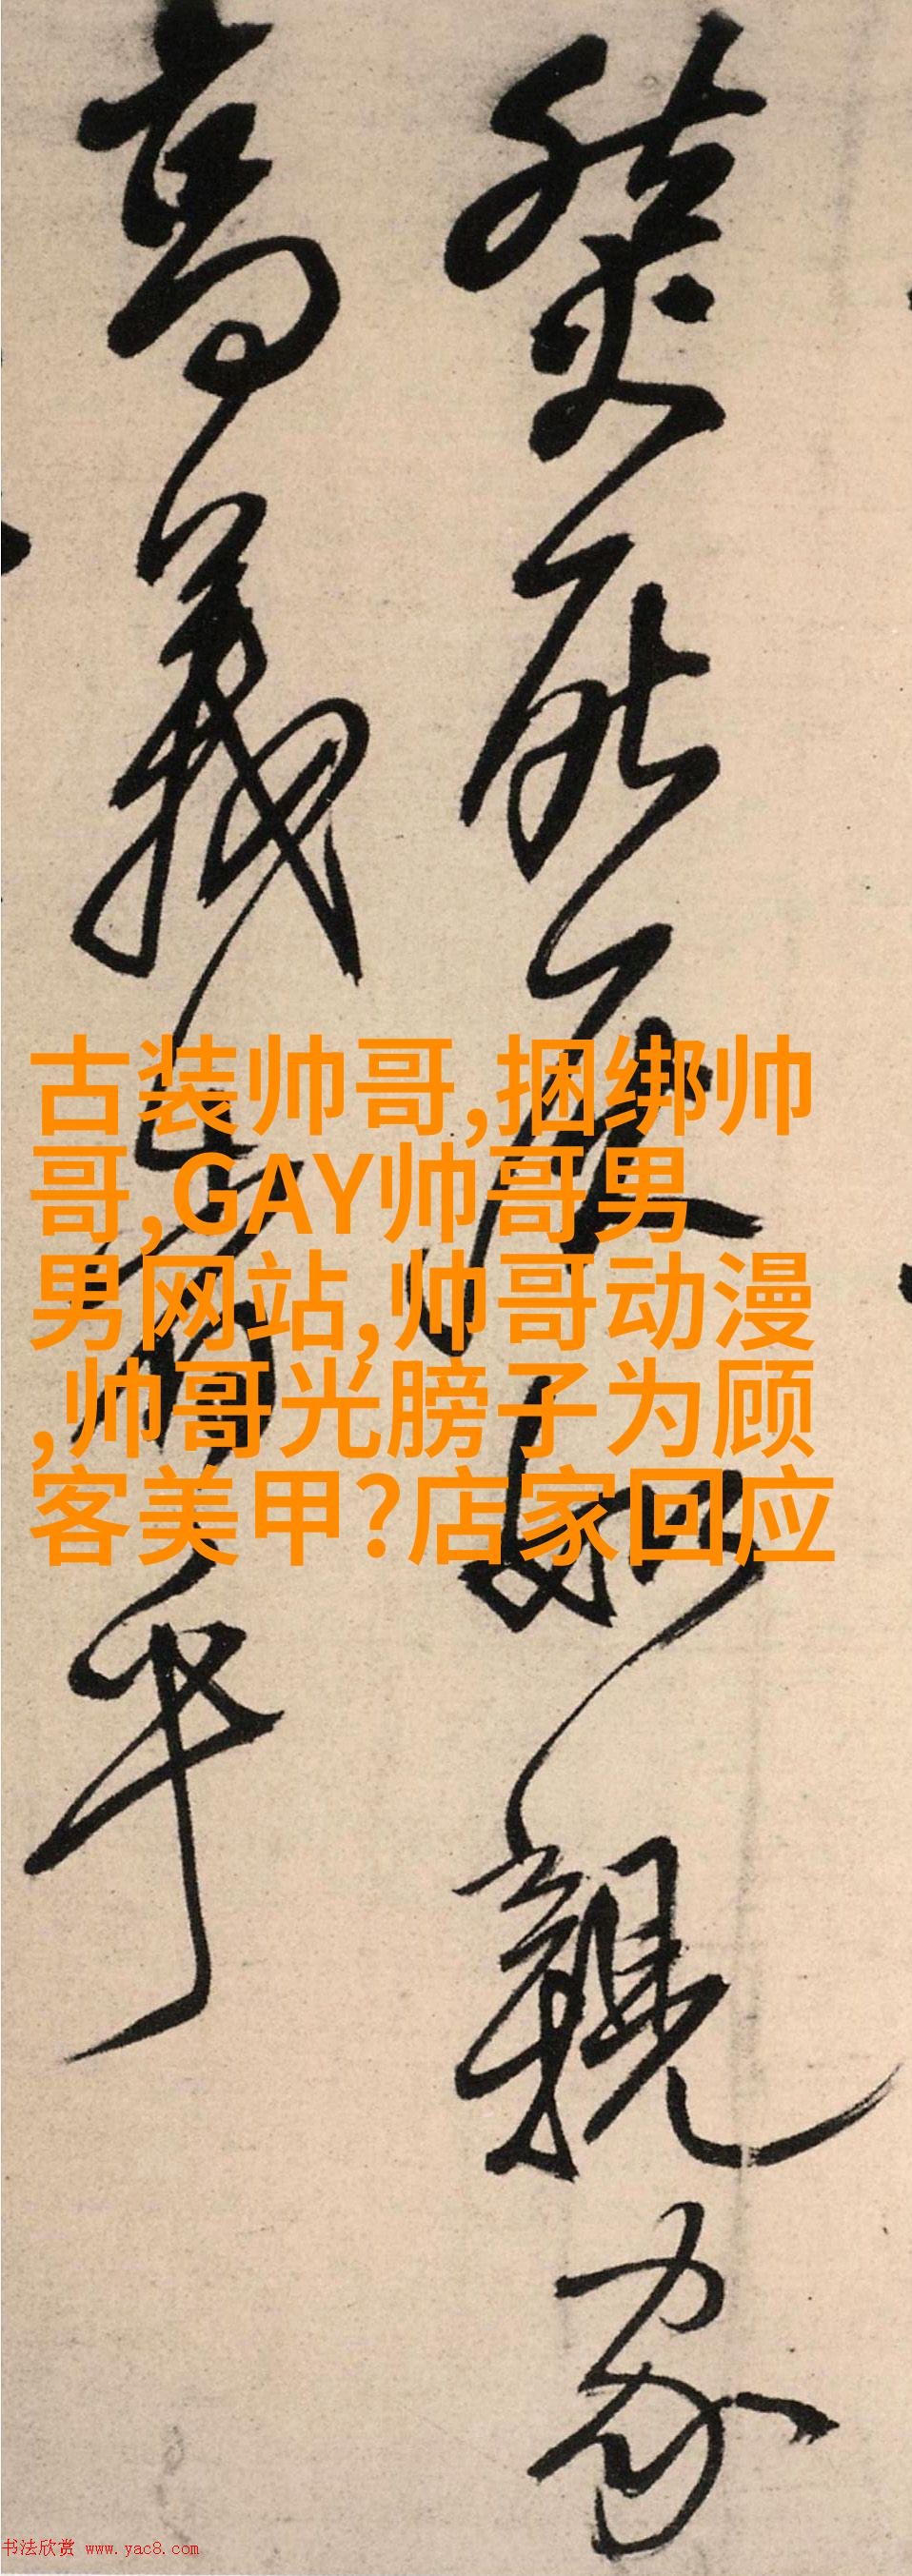 如親家
高義乎
古装帅哥,捆绑帅
哥,GAY帅哥男
男网站,帅哥动漫
,帅哥光膀子为顾
客美甲?店家回应
书法欣赏 www.yac8.com